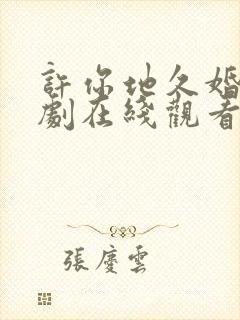 許你地久婚
劇在綫觀看
張慶雲